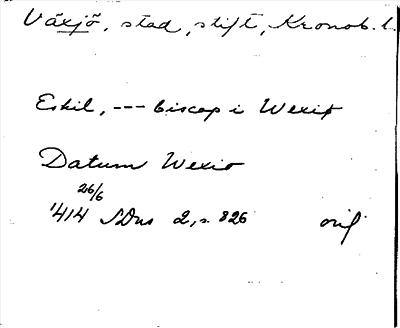 Växjö, stad, stift, Kronob. l.
Eskil, --- biscop i Wexiø
Datum Wexio
26/6
1414 SDns 2, s. 826 orig